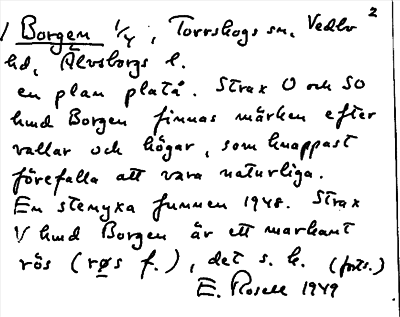 2
1 Borgen 1/4, Torrskogs sn. Vedbo
hd, Älvsborgs l.
en plan platå. Strax O och SO
kmd Borgen finnas märken efter
vallar och högar, som knappast
förefalla att vara naturliga.
En stenyxa funnen 1948. Strax
V kmd Borgen är ett markant
rös (røs f.), det s. k. (forts.)
E. Rosell 1949